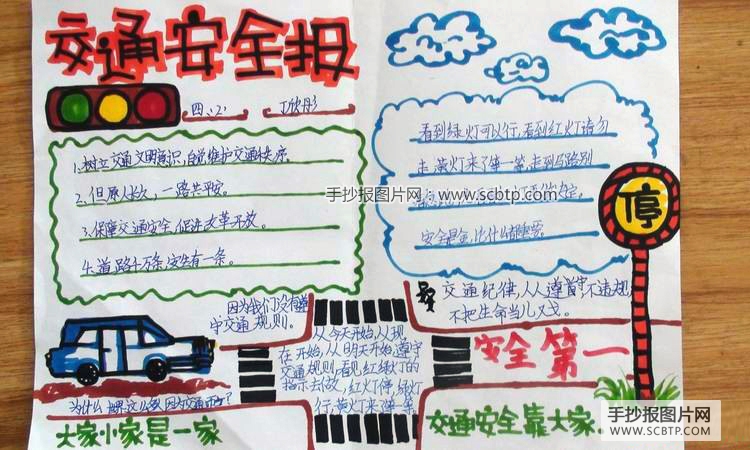 交通安全报
四、2
丁欣彤
1.树立交通文明意识，自觉维护交通秩序。
2.但愿人长久，一路共平安。
3.保障交通安全，促进改革开放。
4.道路千万条，安全有一条。
看到绿灯可以行，看到红灯请勿
走，黄灯来了等一等，走到马路别
安全是金，比什么都重要。
手抄报图片网：www.scbtp.com
停
因为我们没有遵
守交通规则。
交通纪律，人人遵守不违规，
不把生命当儿戏。
从今天开始，从现
在开始，从明天开始，遵守
交通规则，看见红绿灯的
指示去做，红灯停，绿灯
行，黄灯来了等一等。
安全第一
为什么
因为交通
大家小家是一家
交通安全靠大家.
手抄报图片网
WWW.SCBTP.COM